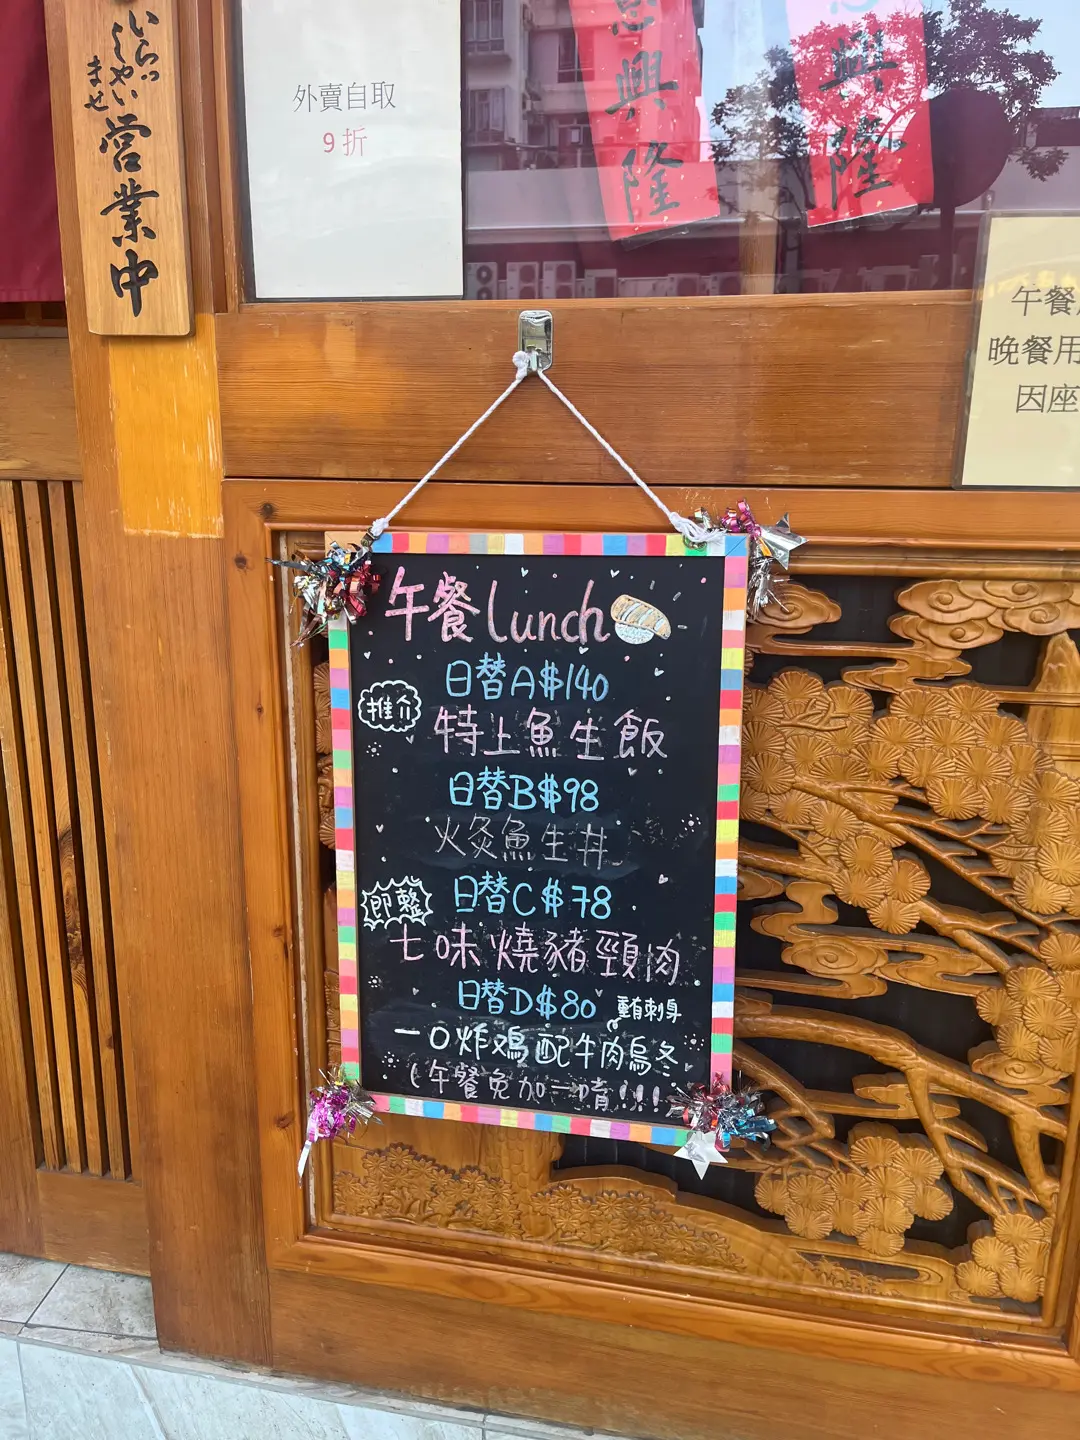 いらっ
しゃい
ませ
営業中
外賣自取
9折
興隆
興隆
午餐
晚餐用
因座
午餐Lunch
日替A$140
推介
特上魚生飯
日替B$98
火炙魚生丼
日替C$78
即整
七味燒豬頸肉
日替D$80
重有刺身
一口炸鸡配牛肉烏冬
(午餐免加一唷!!!)